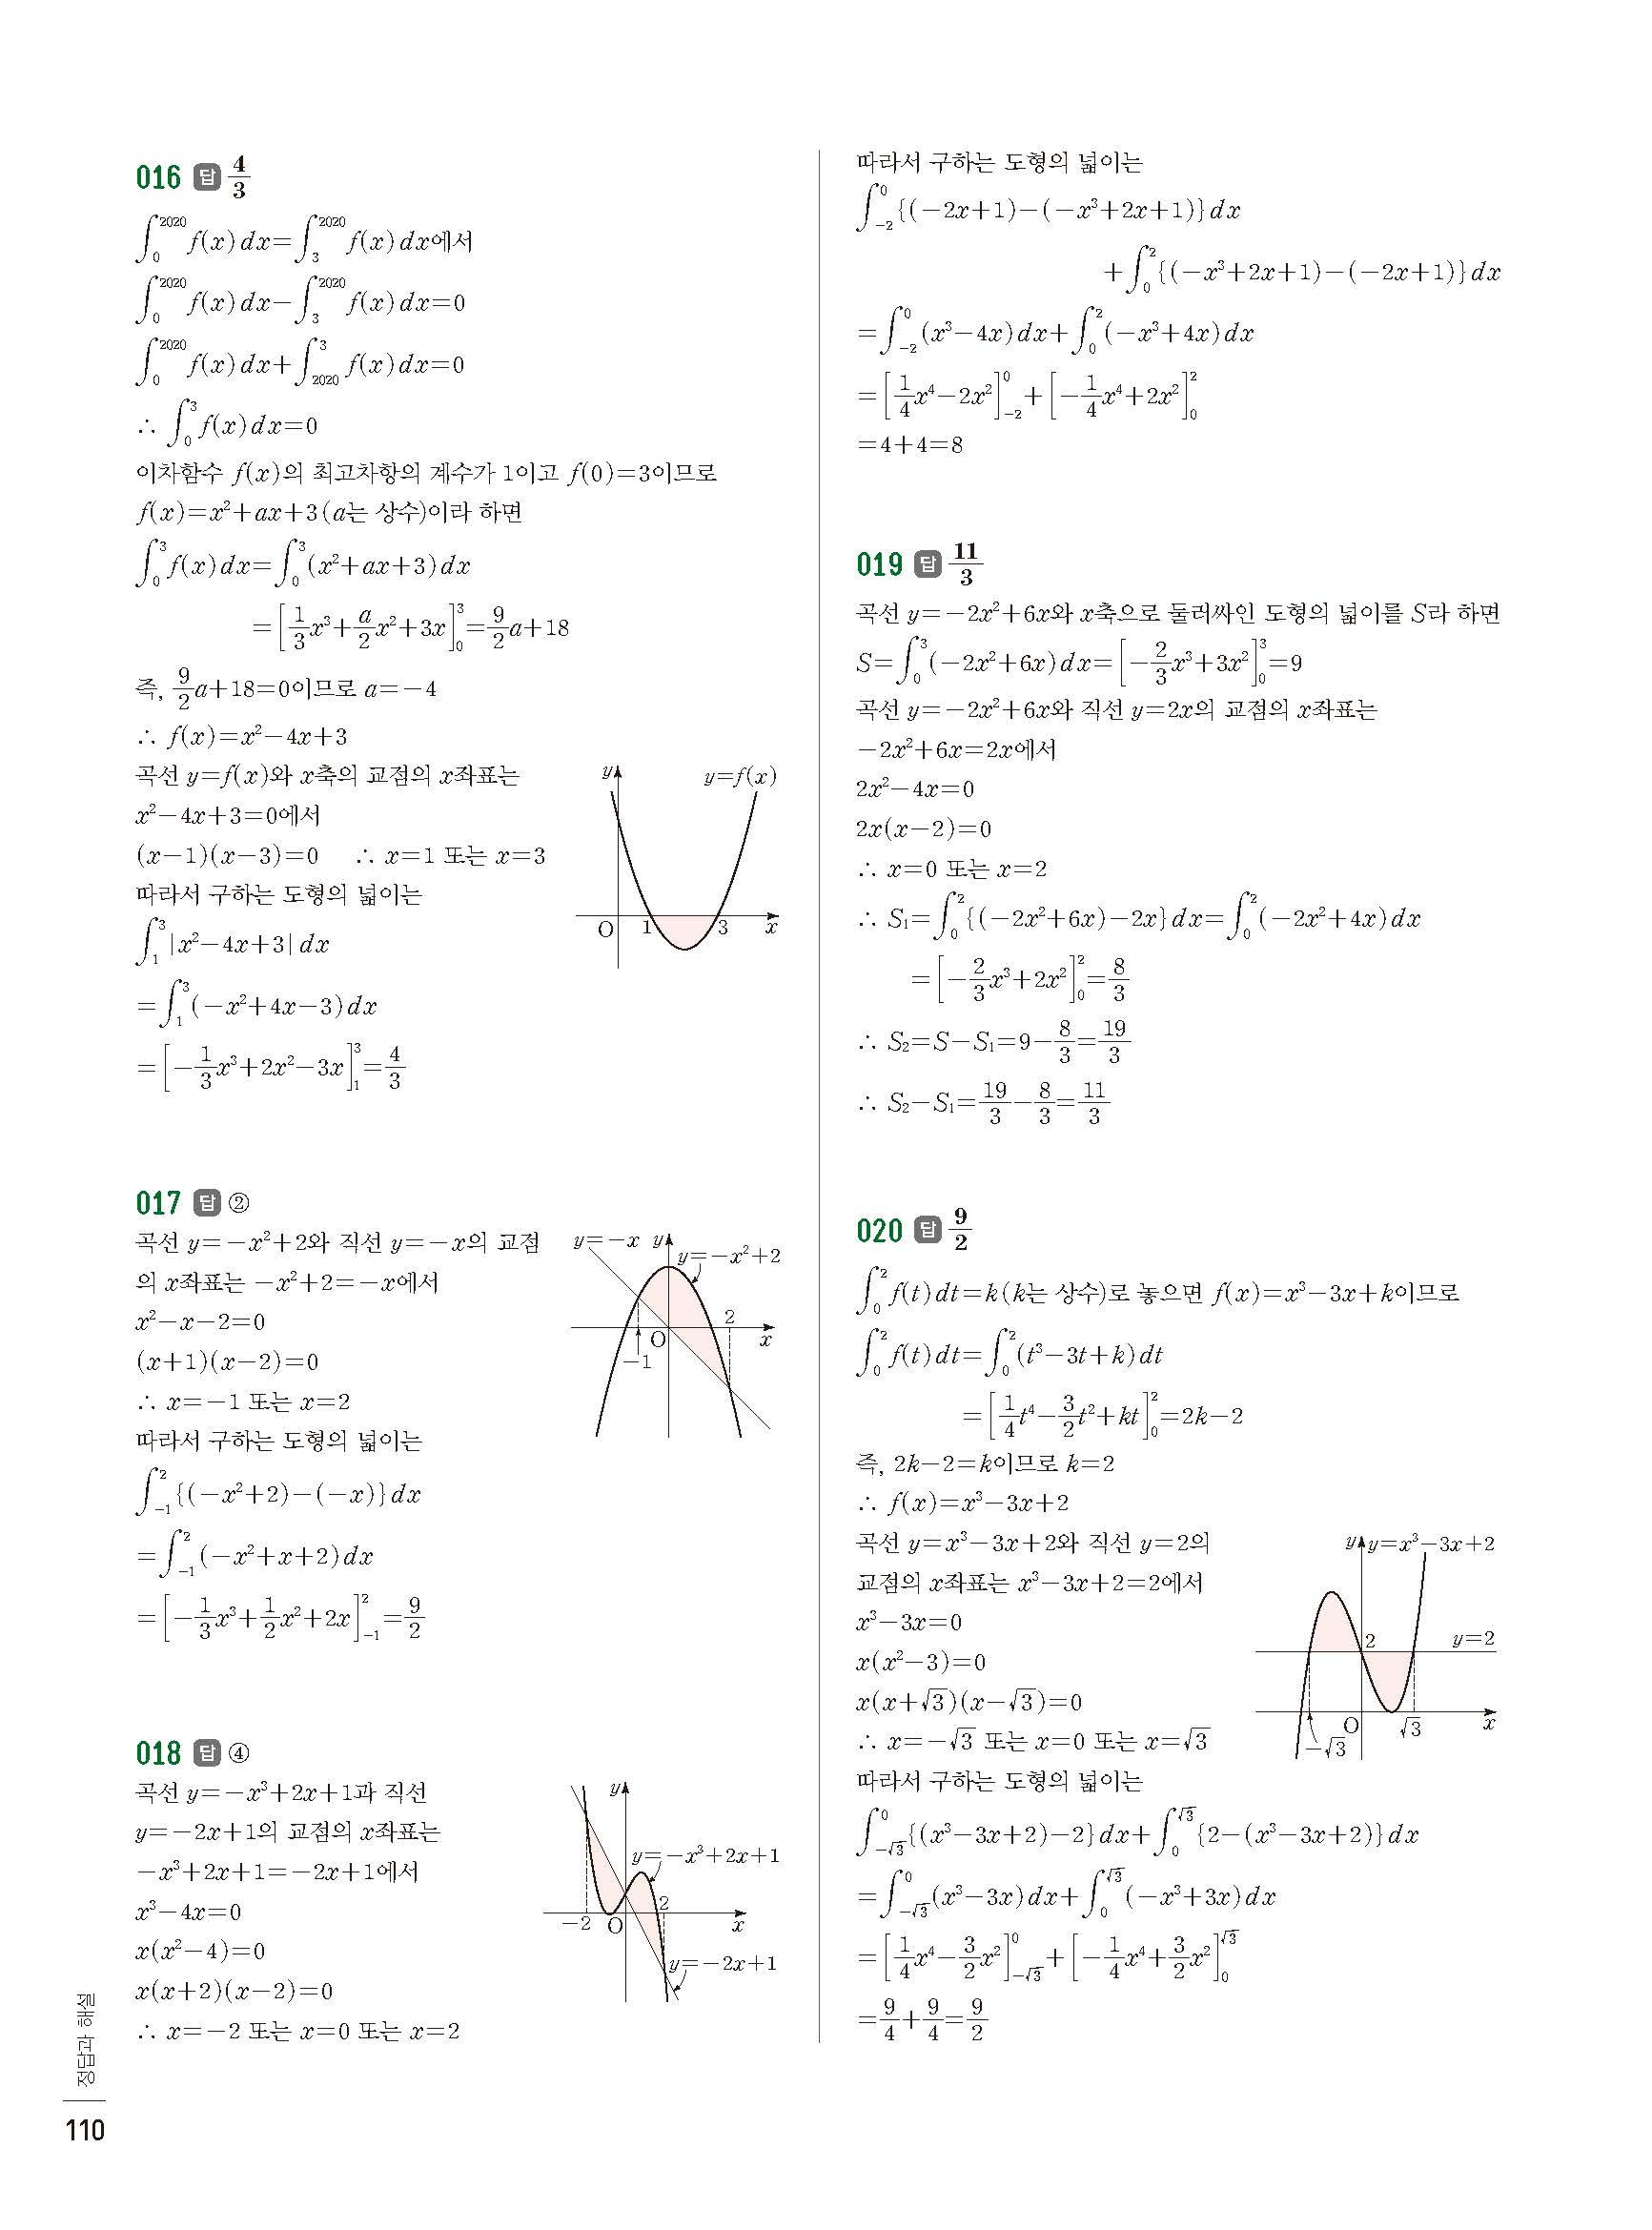 016 답 4/3
∫_0^2020 f(x)dx=∫_3^2020 f(x)dx에서
∫_0^2020 f(x)dx-∫_3^2020 f(x)dx=0
∫_0^2020 f(x)dx+∫_2020^3 f(x)dx=0
∴ ∫_0^3 f(x)dx=0
이차함수 f(x)의 최고차항의 계수가 1이고 f(0)=3이므로
f(x)=x²+ax+3(a는 상수)이라 하면
∫_0^3 f(x)dx=∫_0^3 (x²+ax+3)dx
=[1/3x³+a/2x²+3x]_0^3=9/2a+18
즉, 9/2a+18=0이므로 a=-4
∴ f(x)=x²-4x+3
곡선 y=f(x)와 x축의 교점의 x좌표는
x²-4x+3=0에서
(x-1)(x-3)=0 ∴ x=1 또는 x=3
따라서 구하는 도형의 넓이는
∫_1^3 |x²-4x+3|dx
=∫_1^3 (-x²+4x-3)dx
=[-1/3x³+2x²-3x]_1^3=4/3
y y=f(x)
O 1 3 x
017 답 ②
곡선 y=-x²+2와 직선 y=-x의 교점
의 x좌표는 -x²+2=-x에서
x²-x-2=0
(x+1)(x-2)=0
∴ x=-1 또는 x=2
따라서 구하는 도형의 넓이는
∫_-1^2 {(-x²+2)-(-x)}dx
=∫_-1^2 (-x²+x+2)dx
=[-1/3x³+1/2x²+2x]_-1^2=9/2
y=-x y
y=-x²+2
2
O x
-1
018 답 ④
곡선 y=-x³+2x+1과 직선
y=-2x+1의 교점의 x좌표는
-x³+2x+1=-2x+1에서
x³-4x=0
x(x²-4)=0
x(x+2)(x-2)=0
∴ x=-2 또는 x=0 또는 x=2
y
y=-x³+2x+1
2
-2 O x
y=-2x+1
따라서 구하는 도형의 넓이는
∫_-2^0 {(-2x+1)-(-x³+2x+1)}dx
+∫_0^2 {(-x³+2x+1)-(-2x+1)}dx
=∫_-2^0 (x³-4x)dx+∫_0^2 (-x³+4x)dx
=[1/4x⁴-2x²]_-2^0+[-1/4x⁴+2x²]_0^2
=4+4=8
019 답 11/3
곡선 y=-2x²+6x와 x축으로 둘러싸인 도형의 넓이를 S라 하면
S=∫_0^3 (-2x²+6x)dx=[-2/3x³+3x²]_0^3=9
곡선 y=-2x²+6x와 직선 y=2x의 교점의 x좌표는
-2x²+6x=2x에서
2x²-4x=0
2x(x-2)=0
∴ x=0 또는 x=2
∴ S₁=∫_0^2 {(-2x²+6x)-2x}dx=∫_0^2 (-2x²+4x)dx
=[-2/3x³+2x²]_0^2=8/3
∴ S₂=S-S₁=9-8/3=19/3
∴ S₂-S₁=19/3-8/3=11/3
020 답 9/2
∫_0^2 f(t)dt=k(k는 상수)로 놓으면 f(x)=x³-3x+k이므로
∫_0^2 f(t)dt=∫_0^2 (t³-3t+k)dt
=[1/4t⁴-3/2t²+kt]_0^2=2k-2
즉, 2k-2=k이므로 k=2
∴ f(x)=x³-3x+2
곡선 y=x³-3x+2와 직선 y=2의
교점의 x좌표는 x³-3x+2=2에서
x³-3x=0
x(x²-3)=0
x(x+√3)(x-√3)=0
∴ x=-√3 또는 x=0 또는 x=√3
따라서 구하는 도형의 넓이는
∫_-√3^0 {(x³-3x+2)-2}dx+∫_0^√3 {2-(x³-3x+2)}dx
=∫_-√3^0 (x³-3x)dx+∫_0^√3 (-x³+3x)dx
=[1/4x⁴-3/2x²]_-√3^0+[-1/4x⁴+3/2x²]_0^√3
=9/4+9/4=9/2
y y=x³-3x+2
2 y=2
O √3 x
-√3
정답과 해설
110